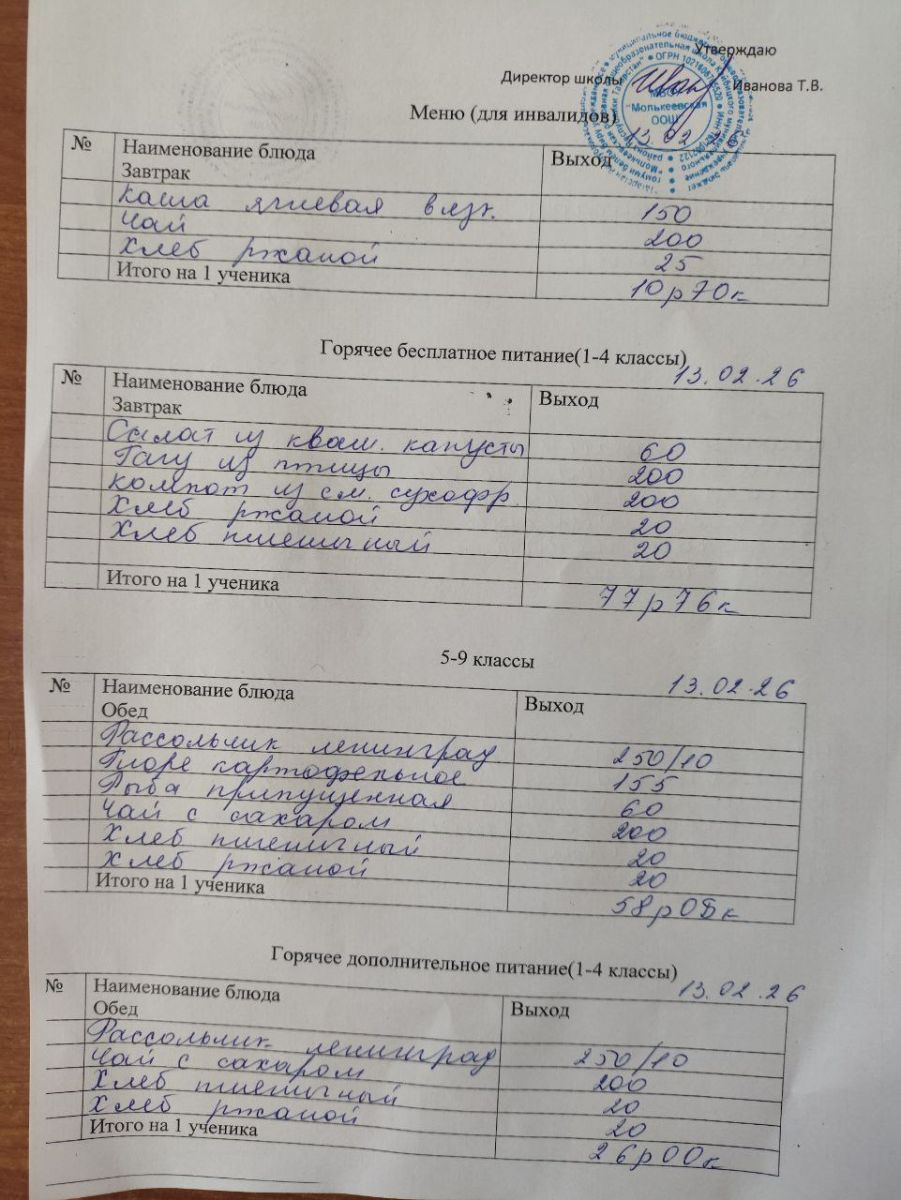 Утверждаю
Директор школы Иванова Т.В.
Меню (для инвалидов)
"Молькеевская
ООШ"
13 02
№ Наименование блюда Выход
Завтрак
Каша ячневая вязк. 150
Чай 200
Хлеб ржаной 25
Итого на 1 ученика 10р70к
Горячее бесплатное питание(1-4 классы)
13.02.26
№ Наименование блюда Выход
Завтрак
Салат из кваш. капусты 60
Рагу из птицы 200
компот из см. сухофр 200
Хлеб ржаной 20
Хлеб пшеничный 20
Итого на 1 ученика 77р76к
5-9 классы
13.02.26
№ Наименование блюда Выход
Обед
Рассольник ленинград 250/10
Пюре картофельное 155
Рыба припущенная 60
Чай с сахаром 200
Хлеб пшеничный 20
Хлеб ржаной 20
Итого на 1 ученика 58р08к
Горячее дополнительное питание(1-4 классы)
13.02.26
№ Наименование блюда Выход
Обед
Рассольник ленинград 250/10
Чай с сахаром 200
Хлеб пшеничный 20
Хлеб ржаной 20
Итого на 1 ученика 26р00к